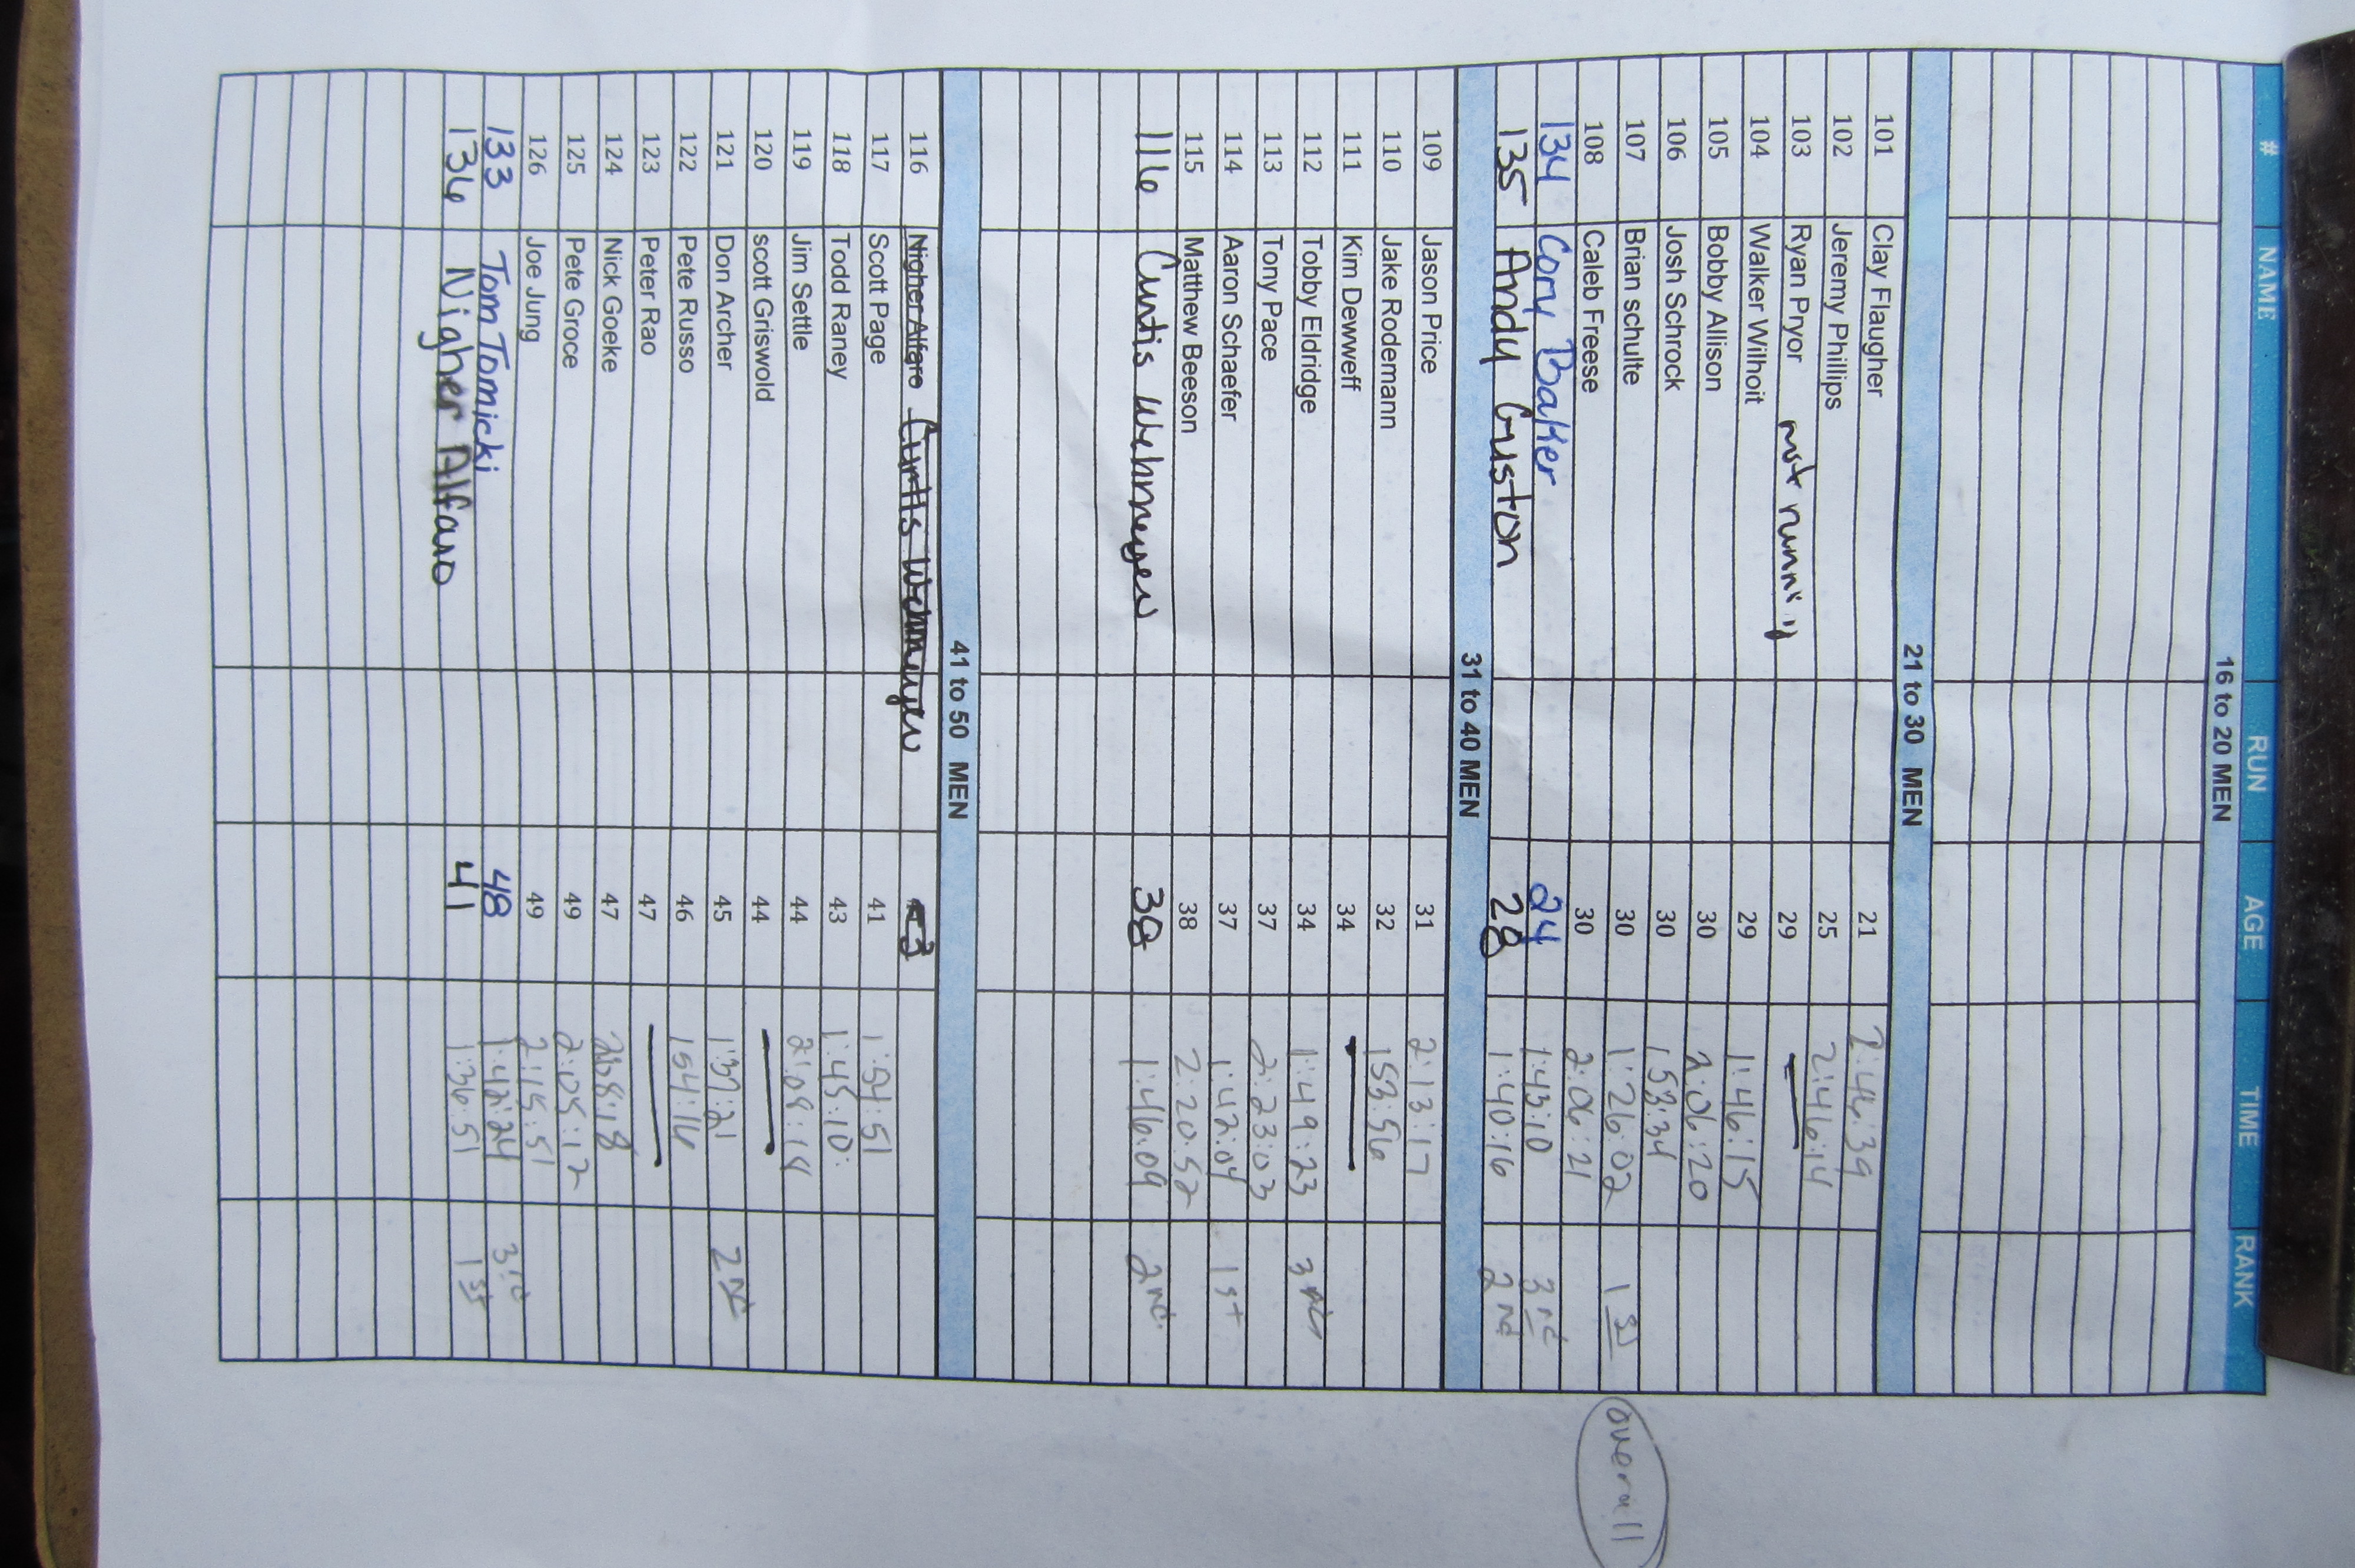 # NAME RUN AGE TIME RANK
16 to 20 MEN
21 to 30 MEN
101 Clay Flaugher 21 2:46:39
102 Jeremy Phillips 25 2:46:14
103 Ryan Pryor not 29
104 Walker Wilhoit 29 1:46:15
105 Bobby Allison 30 2:06:20
106 Josh Schrock 30 153:34
107 Brian schulte 30 1:26:02 1st overall
108 Caleb Freese 30 2:06:21
134 Cory Baker 24 1:43:10 3rd
135 Andy Guston 28 1:40:16 2nd
31 to 40 MEN
109 Jason Price 31 2:13:17
110 Jake Rodemann 32 153:56
111 Kim Dewweff 34
112 Tobby Eldridge 34 1:49:23 3rd
113 Tony Pace 37 2:23:03
114 Aaron Schaefer 37 1:42:04 1st
115 Matthew Beeson 38 2:20:52
116 Curtis Wehmeyer 38 1:46:09 2nd
41 to 50 MEN
116 Nigher Alfaro Curtis Wehmeyer
117 Scott Page 41 1:54:51
118 Todd Raney 43 1:45:10:
119 Jim Settle 44 2:08:18
120 scott Griswold 44
121 Don Archer 45 1:37:21 2nd
122 Pete Russo 46 154:16
123 Peter Rao 47
124 Nick Goeke 47
125 Pete Groce 49 2:05:12
126 Joe Jung 49 2:15:51
133 Tom Tomicki 48 1:42:24 3rd
136 Nigher Alfaro 41 1:36:51 1st